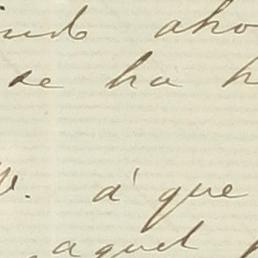 aho
se ha h
V. á que
aquel